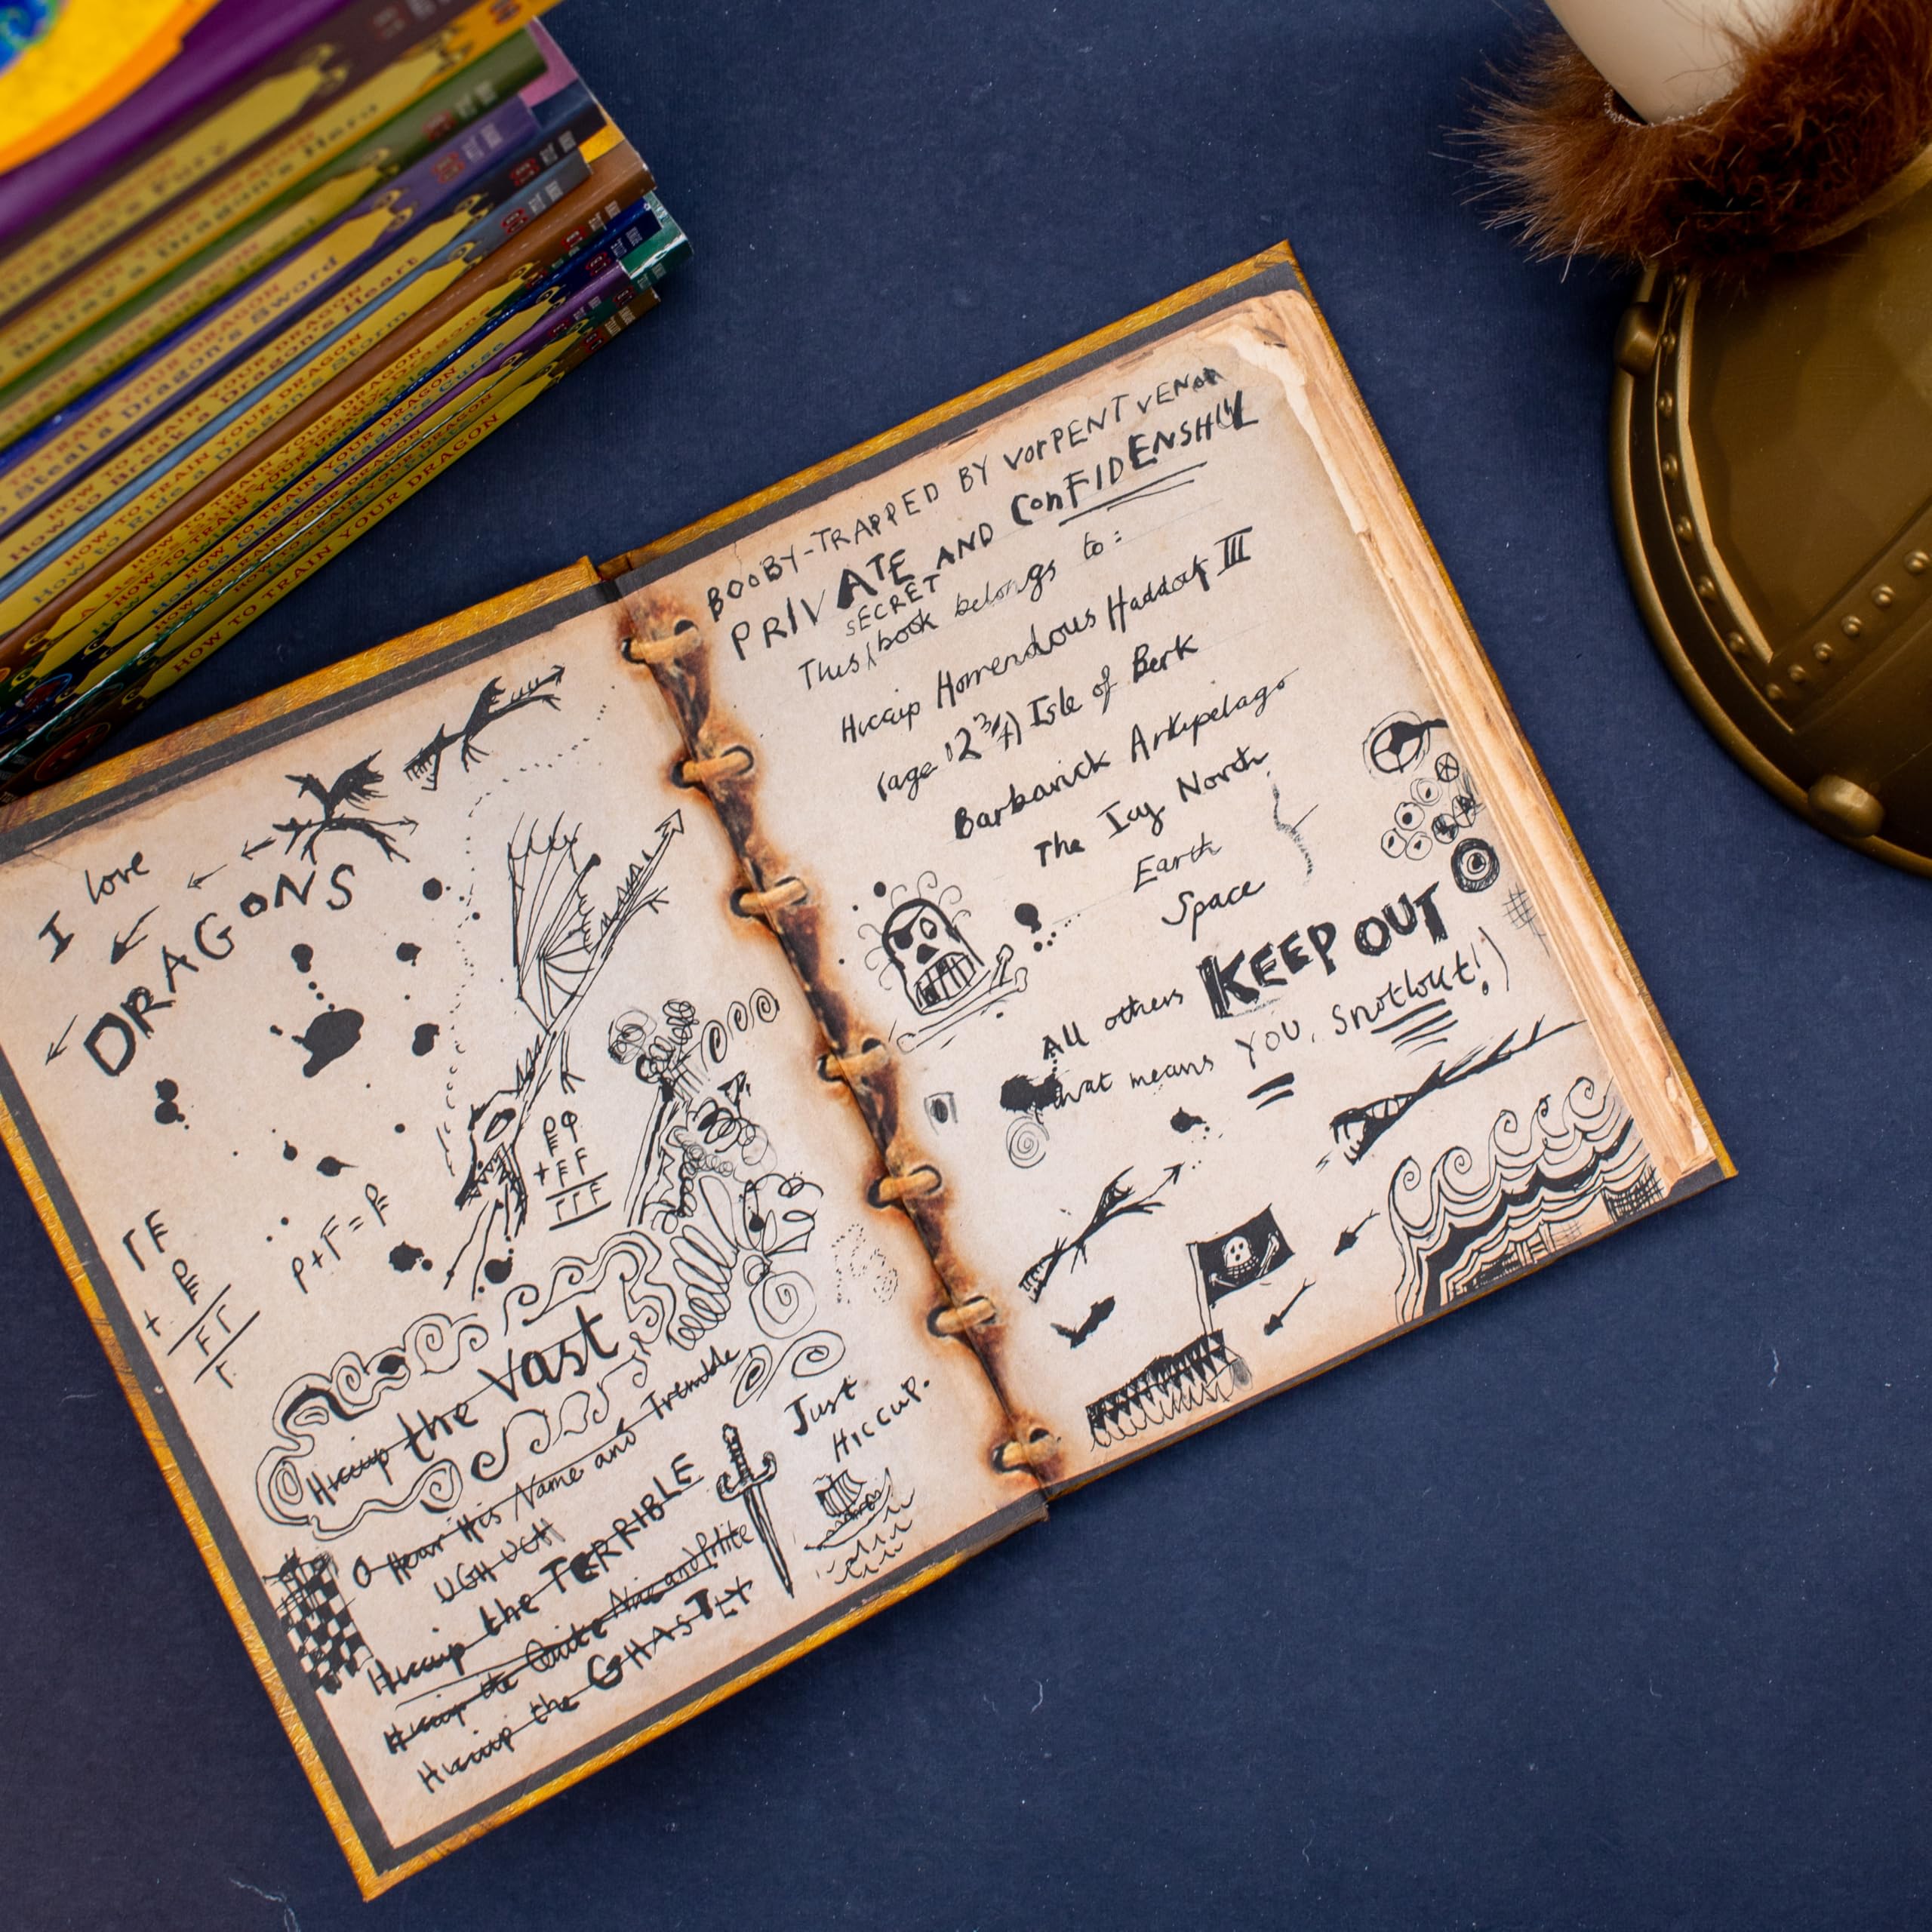 HOW TO TRAIN YOUR DRAGON
Betray a Dragon's Hero
HOW TO TRAIN YOUR DRAGON
Steal a Dragon's Sword
HOW TO TRAIN YOUR DRAGON
How to Break a Dragon's Heart
HOW TO TRAIN YOUR DRAGON
How to Ride a Dragon's Storm
HOW TO TRAIN YOUR DRAGON
HOW TO TRAIN YOUR DRAGON
Dragon's Curse
HOW TO TRAIN YOUR DRAGON
HOW TO TRAIN YOUR DRAGON
I love
DRAGONS
P+F=P
Hiccup the Vast
O Hear His Name and Tremble
UGH UGH
Hiccup the TERRIBLE
Hiccup the Quite Nice and Polite
Hiccup the GHASTLY
Just
Hiccup.
BOOBY-TRAPPED BY VorPENT VENOM
PRIVATE AND ConFIDENSHUL
SECRET
This book belongs to:
Hiccup Horrendous Haddock III
(age 12 3/4) Isle of Berk
Barbarick Arkipelago
The Icy North
Earth
Space
All others KEEP OUT
that means YOU, Snotlout!)